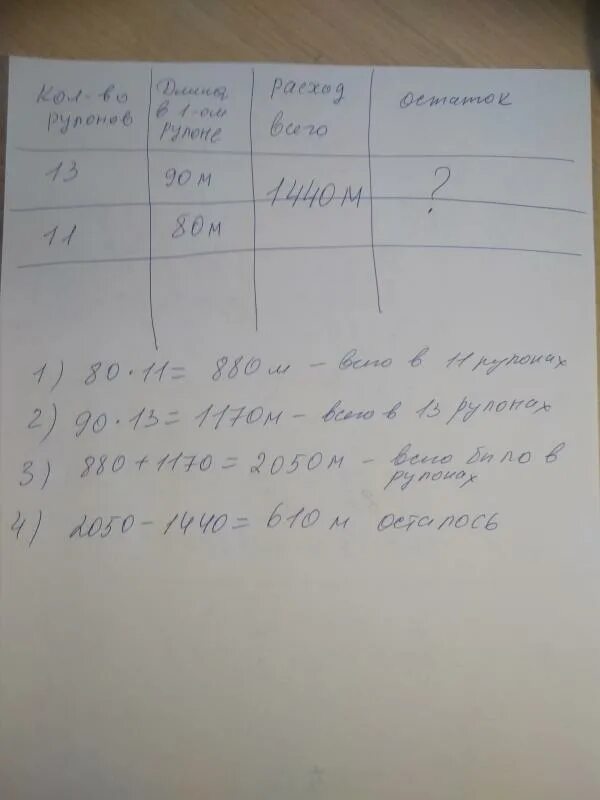 Кол-во Длина расход остаток
рулонов в 1-ом всего
рулоне
13 90 м 1440 м ?
11 80 м
1) 80 · 11 = 880 м - всего в 11 рулонах
2) 90 · 13 = 1170 м - всего в 13 рулонах
3) 880 + 1170 = 2050 м - всего было в
рулонах
4) 2050 - 1440 = 610 м осталось